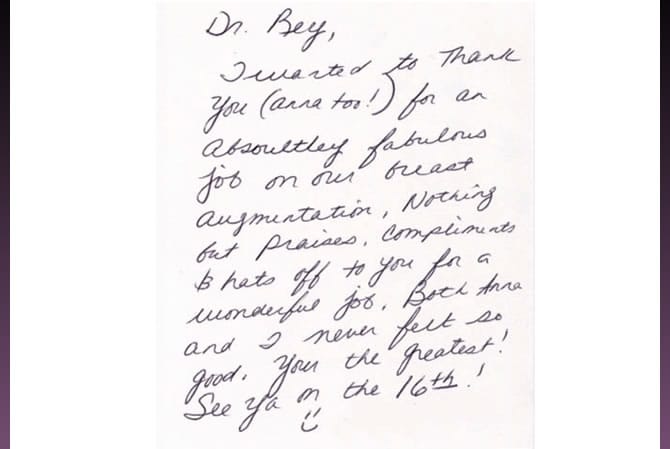 Dr. Bey,
I wanted to thank
you (anna too!) for an
absoultley fabulous
job on our breast
augmentation, Nothing
but praises, compliments
& hats off to you for a
wonderful job. Both Anna
and I never felt so
good. Your the greatest!
See ya on the 16th!